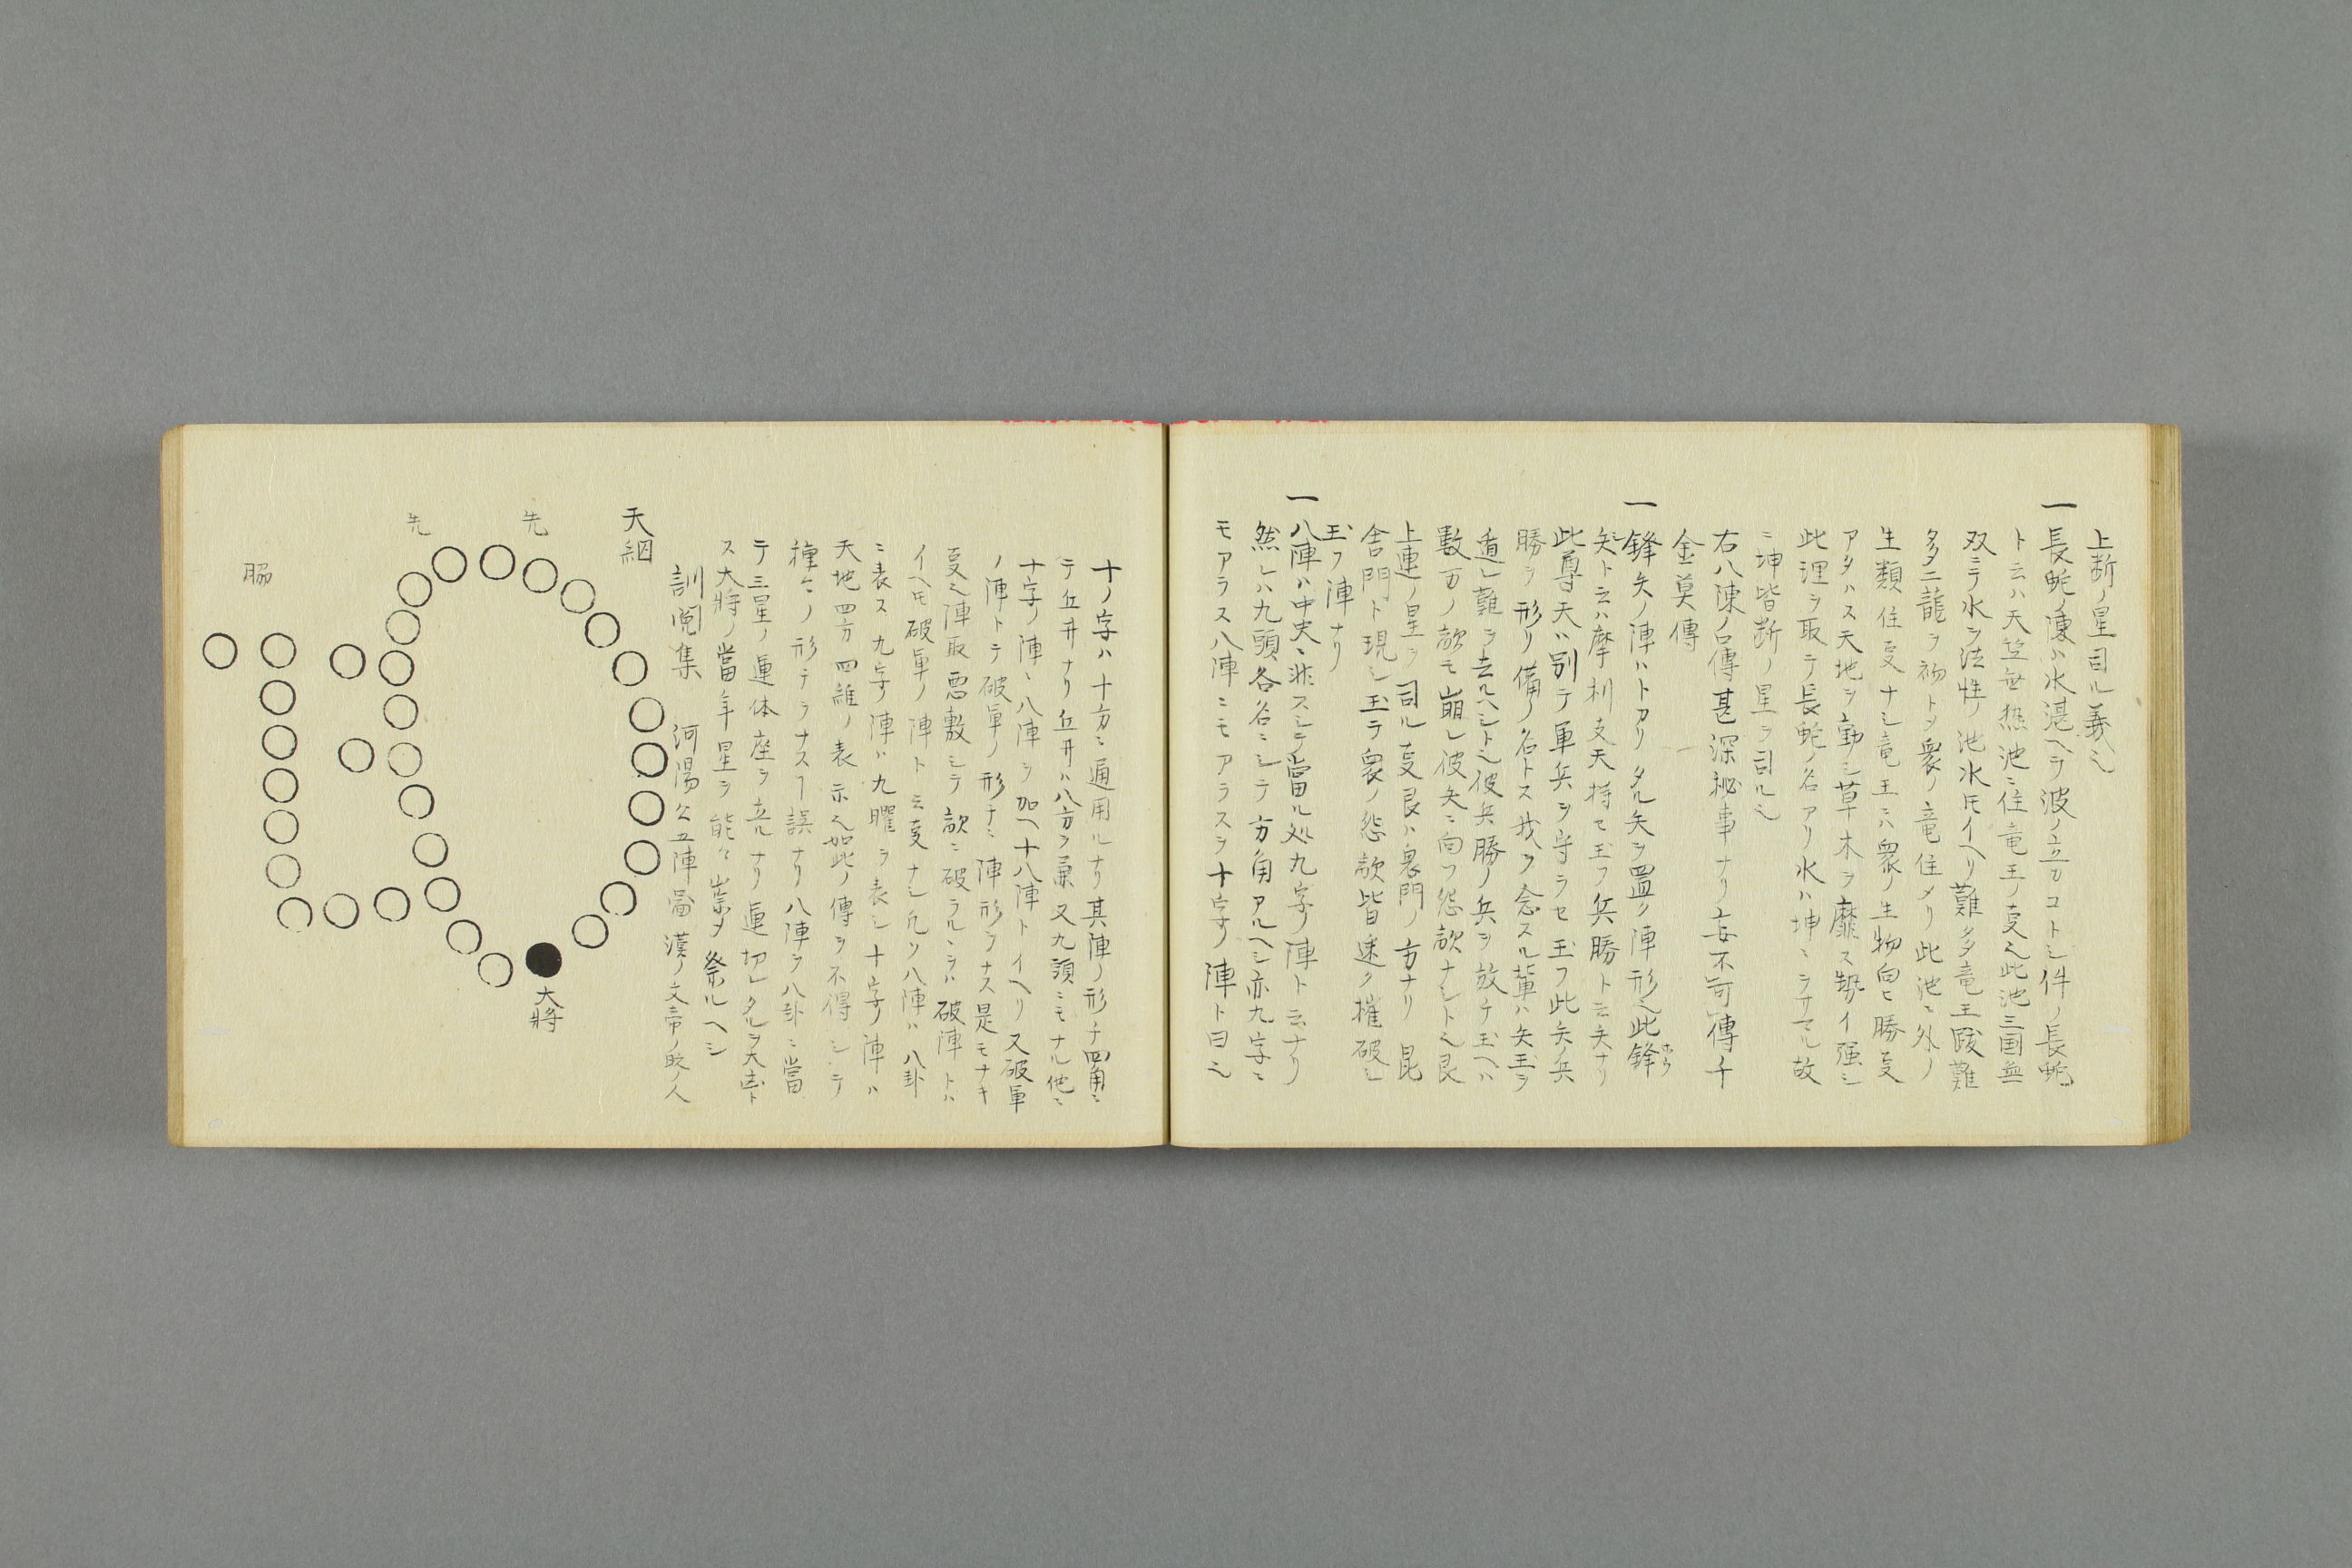 上断ノ星司ル義也
一長蛇ノ陳ハ水湛ヘテ波ノ立カコトシ件ノ長蛇
ト云ハ天竺無熱池ニ住竜王ノ支也此池三国無
双ニテ水ヲ法性ノ池水氏イヘリ難多竜王跋難
多ニ龍ヲ初トメ衆ノ竜住メリ此池ニ外ノ
生類住支ナシ竜王ニハ衆ノ生物向ヒ勝支
アタハス天地ヲ動シ草木ヲ靡ス勢イ強シ
此理ヲ取テ長蛇ノ名アリ水ハ坤ニヲサマル故
ニ坤皆断ノ星ヲ司ル也
右八陳ノ口傳甚深秘事ナリ妄不可傳千
金莫傳
一鋒矢ノ陣ハトカリタル矢ヲ置ク陣形也此鋒
矢ト云ハ摩利支天持セ玉フ兵勝ト云矢ナリ
此尊天ハ別テ軍兵ヲ守ラセ玉フ此矢ノ兵
勝ヲ形リ備ノ名トス我ヲ念スル輩ハ矢玉ヲ
遁レ難ヲ去ルヘシト也彼兵勝ノ兵ヲ放チ玉ヘハ
數万ノ敵モ崩レ彼矢ニ向フ怨敵ナシト也艮
上連ノ星ヲ司ル支艮ハ裏門ノ方ナリ昆
舎門ト現シ玉テ衆ノ怨敵皆速ク摧破シ
玉フ陣ナリ
一八陣ハ中央ニ非スシテ當ル処九字ノ陣ト云ナリ
然レハ九頭各各ニシテ方角アルヘシ亦九字ニ
モアラス八陣ニモアラスヲ十字ノ陣ト曰也
十ノ字ハ十方ニ通用ルナリ其陣ノ形チ四角ニ
テ丘井ナリ丘井ハ八方ヲ兼又九頭ニモナル他ニ
十字ノ陣ハ八陣ヲ加ヘ十八陣トイヘリ又破軍
ノ陣トテ破軍ノ形チニ陣形ヲナス是モナキ
支也陣取悪敷シテ敵ニ破ラルヽヲハ破陣トハ
イヘ氏破軍ノ陣ト云支ナシ凡ソ八陣ハ八卦
ニ表ス九字ノ陣ハ九曜ヲ表シ十字ノ陣ハ
天地四方四維ノ表示也如此ノ傳ヲ不得シテ
種々ノ形チヲナスヿ誤ナリ八陣ヲ八卦ニ當
テ三星ノ運体座ヲ立ルナリ運切レタルヲ大吉ト
ス大將ノ當年星ヲ能々崇メ祭ルヘシ
訓閲集　河陽公五陣圖漢ノ文帝ノ時ノ人
天網
先
先
脇
大將